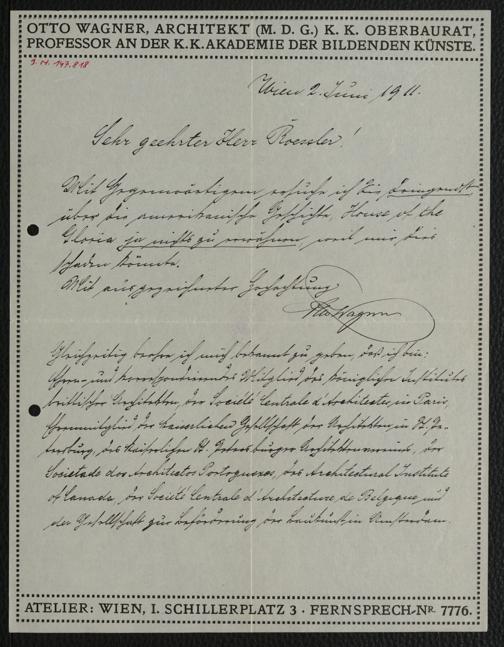 OTTO WAGNER, ARCHITEKT (M. D. G.) K. K. OBERBAURAT,
PROFESSOR AN DER K. K. AKADEMIE DER BILDENDEN KÜNSTE.
J. N. 147.818
Wien 2. Juni 1911.
Sehr geehrter Herr Roessler!
Mit Gegenwärtigem ersuche ich Sie, dringendst
über die amerikanische Geschichte, House of the
Gloria ja nichts zu erwähnen, weil mir dies
schaden könnte.
Mit ausgezeichneter Hochachtung
Otto Wagner
Gleichzeitig beehre ich mich bekannt zu geben, das ich bin:
Ehren- und korrespondierendes Mitglied des königlichen Institutes
brittischer Architekten, der Société Centrale d'Architecte, in Paris,
Ehrenmitglied der kaiserlichen Gesellschaft der Architekten in St. Pe-
tersburg, des kaiserlichen St. Petersburger Architektenvereins, der
Societade dos Architectos Portoguezes, des Architectural Institute
of Canada, der Société Centrale d'Architecture, de Belgique und
der Gesellschaft zur Beförderung der Baukunst in Amsterdam.
ATELIER: WIEN, I. SCHILLERPLATZ 3 · FERNSPRECH-NR. 7776.